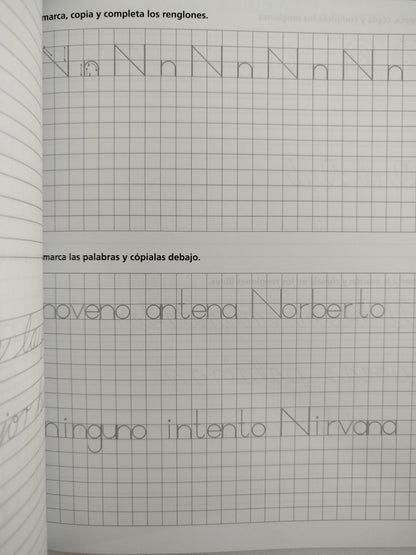 marca, copia y completa los renglones.
N n N n N n N n N n
marca las palabras y cópialas debajo.
noveno antena Norberto
ninguno intento Nirvana